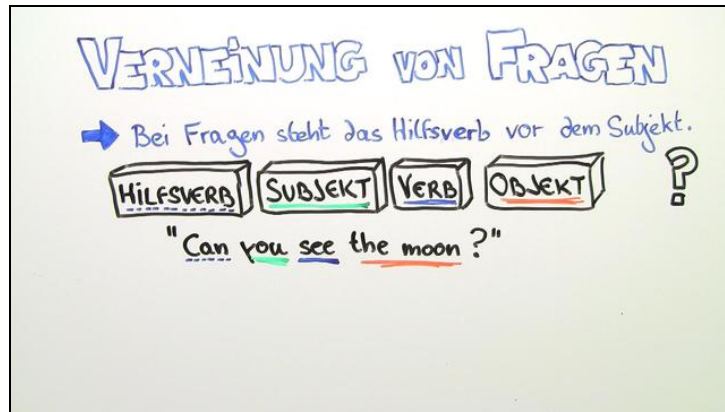 VERNEINUNG VON FRAGEN
Bei Fragen steht das Hilfsverb vor dem Subjekt.
HILFSVERB SUBJEKT VERB OBJEKT ?
"Can you see the moon?"